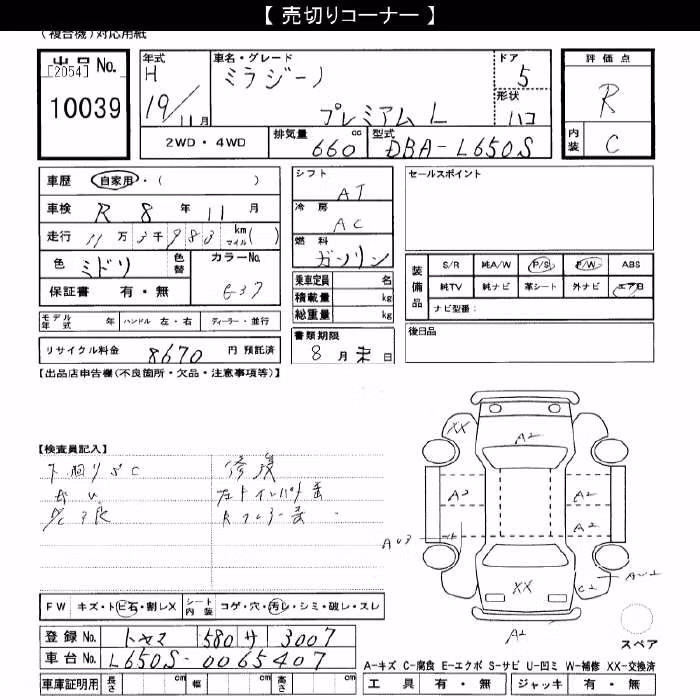 【 売切りコーナー 】
(複合機)対応用紙
出品 No. [2054]
10039
年式 H 19/11月
車名・グレード ミラジーノ
プレミアム L
ドア 5
形状 ハコ
評価点 R
内装 C
2WD・4WD 排気量 660 cc 型式 DBA-L650S
車歴 自家用・( )
車検 R 8 年 11 月
走行 11万3千983 km マイル( )
色 ミドリ 色替 カラーNo. G37
保証書 有・無
モデル年式 年 ハンドル 左・右 ディーラー・並行
リサイクル料金 8670 円 預託済
シフト AT
冷房 AC
燃料 ガソリン
乗車定員 名
積載量 kg
総重量 kg
書類期限 8 月 末 日
セールスポイント
装備品 S/R 純A/W P/S P/W ABS
純TV 純ナビ 革シート 外ナビ エアB
ナビ型番:
後日品
【出品店申告欄(不良箇所・欠品・注意事項等)】
【検査員記入】
下廻りSC
修復
XX
A2
A2 A2
A2
XX C2
A2
FW キズ・トビ石・割レX シート内装 コゲ・穴・汚レ・シミ・破レ・スレ
登録 No. 580 サ 3007
車台 No. L650S-0065407
車庫証明用 長さ cm 幅 cm 高さ cm
スペア
A-キズ C-腐食 E-エクボ S-サビ U-凹ミ W-補修 XX-交換済
工具 有・無 ジャッキ 有・無